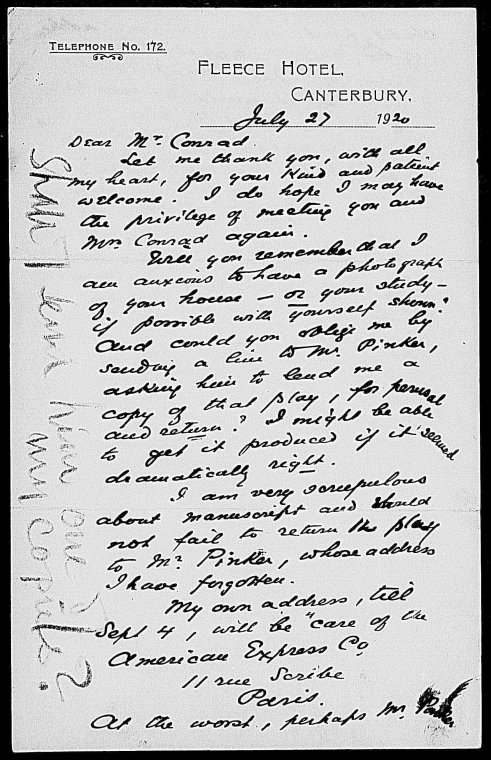 TELEPHONE NO. 172.
FLEECE HOTEL,
CANTERBURY.
July 27 1920
Dear Mr. Conrad
Let me thank you, with all
my heart, for your kind and patient
welcome. I do hope I may have
the privilege of meeting you and
Mrs Conrad again.
Will you remember that I
am anxious to have a photograph
of your house — or your study —
if possible with yourself shown?
And could you oblige me by
sending a line to Mr. Pinker,
asking him to lend me a
copy of that play, for perusal
and return? I might be able
to get it produced if it seemed
dramatically right.
I am very scrupulous
about manuscript and should
not fail to return the play
to Mr. Pinker, whose address
I have forgotten.
My own address, till
Sept 4, will be "care of the
American Express Co
11 rue Scribe
Paris.
At the worst, perhaps Mr. Pinker
Shall I send him one of
my copies?